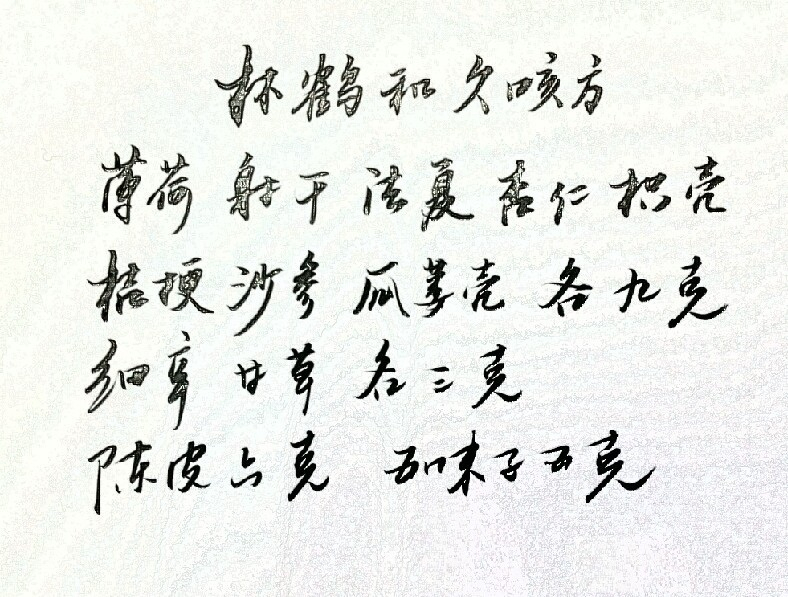 林鹤和久咳方
薄荷 射干 法夏 杏仁 枳壳
桔梗 沙参 瓜蒌壳 各九克
细辛 甘草 各三克
陈皮六克 五味子五克